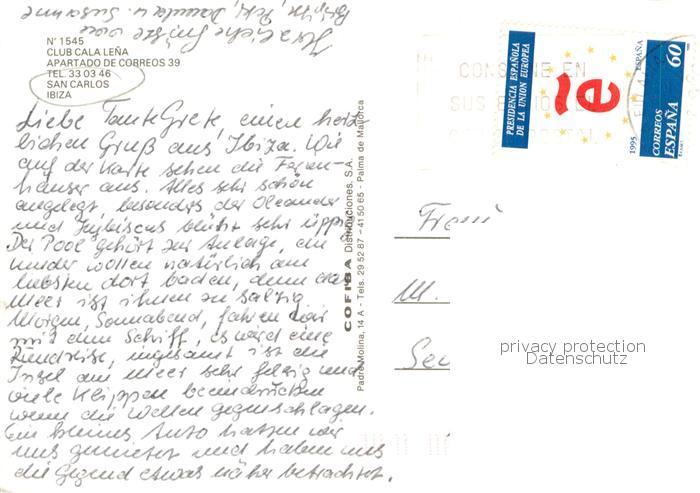 N° 1545
CLUB CALA LEÑA
APARTADO DE CORREOS 39
TEL. 33 03 46
SAN CARLOS
IBIZA
Liebe Tante Grete, einen herz-
lichen Gruß aus Ibiza. Wie
auf der Karte sehen die Ferien-
häuser aus. Alles sehr schön
angelegt, besonders der Oleander
und Hybiscus blüht sehr üppig.
Der Pool gehört zur Anlage, die
Kinder wollen natürlich am
liebsten dort baden, denn das
Meer ist ihnen zu salzig.
Morgen, Sonnabend, fahren wir
mit dem Schiff, es wird eine
Rundreise, insgesamt ist die
Insel am Meer sehr felsig und
viele Klippen beeindrucken
wenn die Wellen gegenschlagen.
Ein kleines Auto hatten wir
uns gemietet und haben uns
die Gegend etwas näher betrachtet.
Herzliche Grüße von
Brigitte, Daniela u. Susanne
COFIBA Distribuciones, S.A.
Padre Molina, 14 A - Tels. 29 52 87 - 41 50 65 - Palma de Mallorca
PRESIDENCIA ESPAÑOLA
DE LA UNION EUROPEA
ESPAÑA
60
CORREOS
ESPAÑA
1995
CONS NE EN
SUS
Frau
M.
privacy protection
Datenschutz